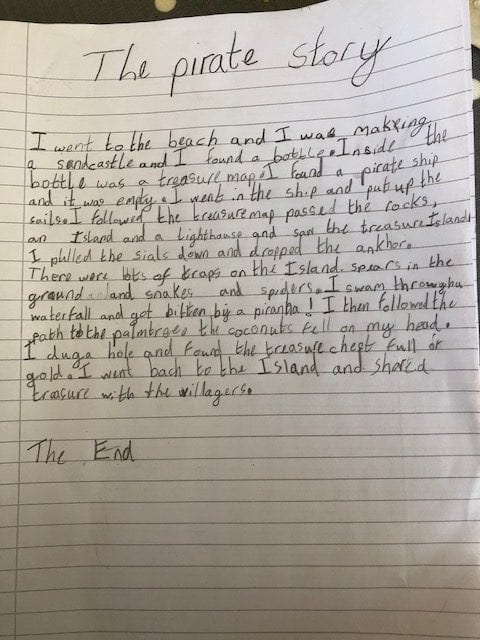 The pirate story
I went to the beach and I was makeing
a sandcastle and I found a bottle. Inside the
bottle was a treasure map. I found a pirate ship
and it was empty. I went in the ship and put up the
sails. I followed the treasure map passed the rocks,
an Island and a lighthouse and saw the treasure Island.
I pulled the sials down and dropped the ankhor.
There were lots of traps on the Island. spears in the
ground and snakes and spiders. I swam through a
waterfall and got bitten by a piranha! I then followed the
path to the palmtrees the coconuts fell on my head.
I dug a hole and found the treasure chest full of
gold. I went bach to the Island and shared
treasure with the villagers.
The End